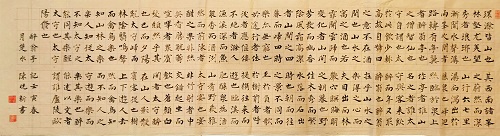 環滁皆山也其西南諸峯
林壑尤美望之蔚然而深
秀者瑯琊也山行六七里
漸聞水聲潺潺而瀉出于
兩峯之間者釀泉也峯回
路轉有亭翼然臨于泉上
者醉翁亭也作亭者誰山
之僧智仙也名之者誰太
守自謂也太守與客來飲
于此飲少輒醉而年又最
高故自號曰醉翁也醉翁
之意不在酒在乎山水之
間也山水之樂得之心而
寓之酒也若夫日出而林
霏開雲歸而巖穴暝晦明
變化者山間之朝暮也野
芳發而幽香佳木秀而繁
陰風霜高潔水落而石出
者山間之四時也朝而往
暮而歸四時之景不同而
樂亦無窮也至于負者歌
于途行者休于樹前者呼
後者應傴僂提攜往來而
不絕者滁人遊也臨谿而
漁谿深而魚肥釀泉為酒
泉香而酒洌山肴野蔌雜
然而前陳者太守宴也宴
酣之樂非絲非竹射者中
弈者勝觥籌交錯起坐而
諠譁者衆賓懽也蒼顏白
髮頹然乎其間者太守醉
也已而夕陽在山人影散
亂太守歸而賓客從也樹
林陰翳鳴聲上下遊人去
而禽鳥樂也然而禽鳥知
山林之樂而不知人之樂
人知從太守遊而樂而不
知太守之樂其樂也醉能
同其樂醒能述以文者太
守也太守謂誰廬陵歐
陽脩也
醉翁亭記 寅春
月雙水 陳 新書